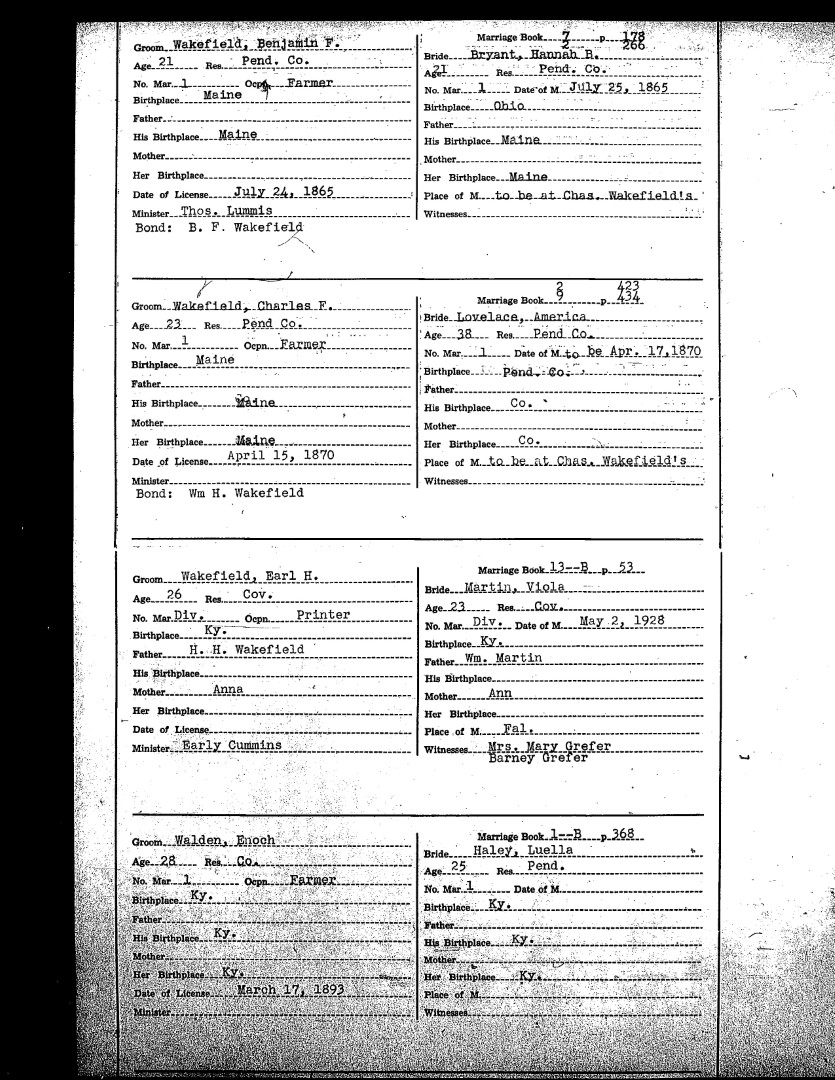 Groom Wakefield, Benjamin F.
Age 21 Res. Pend. Co.
No. Mar. 1 Ocpn. Farmer
Birthplace Maine
Father
His Birthplace Maine
Mother
Her Birthplace
Date of License July 24, 1865
Minister Thos. Lummis
Bond: B. F. Wakefield
Marriage Book 7 p 178
2 266
Bride Bryant, Hannah B.
Age 21 Res. Pend. Co.
No. Mar. 1 Date of M. July 25, 1865
Birthplace Ohio
Father
His Birthplace Maine
Mother
Her Birthplace Maine
Place of M. to be at Chas. Wakefield's
Witnesses
Groom Wakefield, Charles F.
Age 23 Res. Pend Co.
No. Mar. 1 Ocpn. Farmer
Birthplace Maine
Father
His Birthplace Maine
Mother
Her Birthplace Maine
Date of License April 15, 1870
Minister
Bond: Wm H. Wakefield
2 423
Marriage Book 9 p 434
Bride Lovelace, America
Age 38 Res. Pend Co.
No. Mar. 1 Date of M. to be Apr. 17,1870
Birthplace Pend. Co.
Father
His Birthplace Co.
Mother
Her Birthplace Co.
Place of M. to be at Chas. Wakefield's
Witnesses
Groom Wakefield, Earl H.
Age 26 Res. Cov.
No. Mar. Div. Ocpn. Printer
Birthplace Ky.
Father H. H. Wakefield
His Birthplace
Mother Anna
Her Birthplace
Date of License
Minister Early Cummins
Marriage Book 13--B p. 53
Bride Martin, Viola
Age 23 Res. Cov.
No. Mar. Div. Date of M. May 2, 1928
Birthplace Ky.
Father Wm. Martin
His Birthplace
Mother Ann
Her Birthplace
Place of M. Fal.
Witnesses Mrs. Mary Grefer
Barney Grefer
Groom Walden, Enoch
Age 28 Res. Co.
No. Mar. 1 Ocpn. Farmer
Birthplace Ky.
Father
His Birthplace Ky.
Mother
Her Birthplace Ky.
Date of License March 17, 1893
Minister
Marriage Book 1--B p 368
Bride Haley, Luella
Age 25 Res. Pend.
No. Mar. 1 Date of M.
Birthplace Ky.
Father
His Birthplace Ky.
Mother
Her Birthplace Ky.
Place of M.
Witnesses